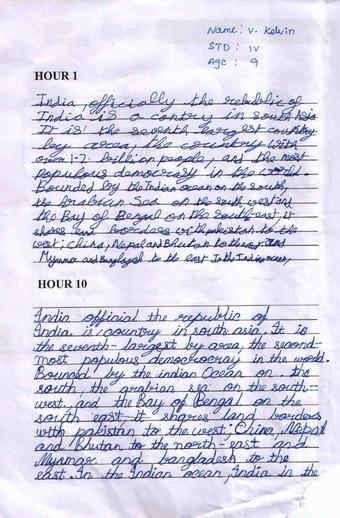 Name: V. Kelvin
STD : IV
Age : 9
HOUR 1
India, officially the rebublic of
India is a contry in south Asia
It is the seventh largest country
by area, the country with
over 1.2 billion people, and the most
populous democracy in the world.
Bounded by the Indian ocean on the south,
the Arabian Sea on the south west and
the Bay of Bengal on the south-east, it
shares land borders with pakistan to the
west; china, Nepal and Bhutan to the and
Myanmar and to the east In the Indian ocean,
HOUR 10
India official the republic of
India is country in south asia. It is
the seventh-largest by area, the second-
most populous democrocray in the world.
Bounced by the indian Ocean on the
south, the arabian sea on the south-
west and the Bay of Bengal on the
south east, it shares land borders
with pakistan to the west; China, Nepal
and Bhutan to the north-east and
Myanmar and bangladesh to the
east. In the Indian ocean, India in the